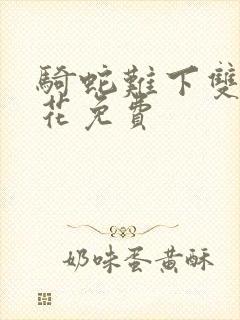 騎蛇難下雙
花免費
奶味蛋黃酥